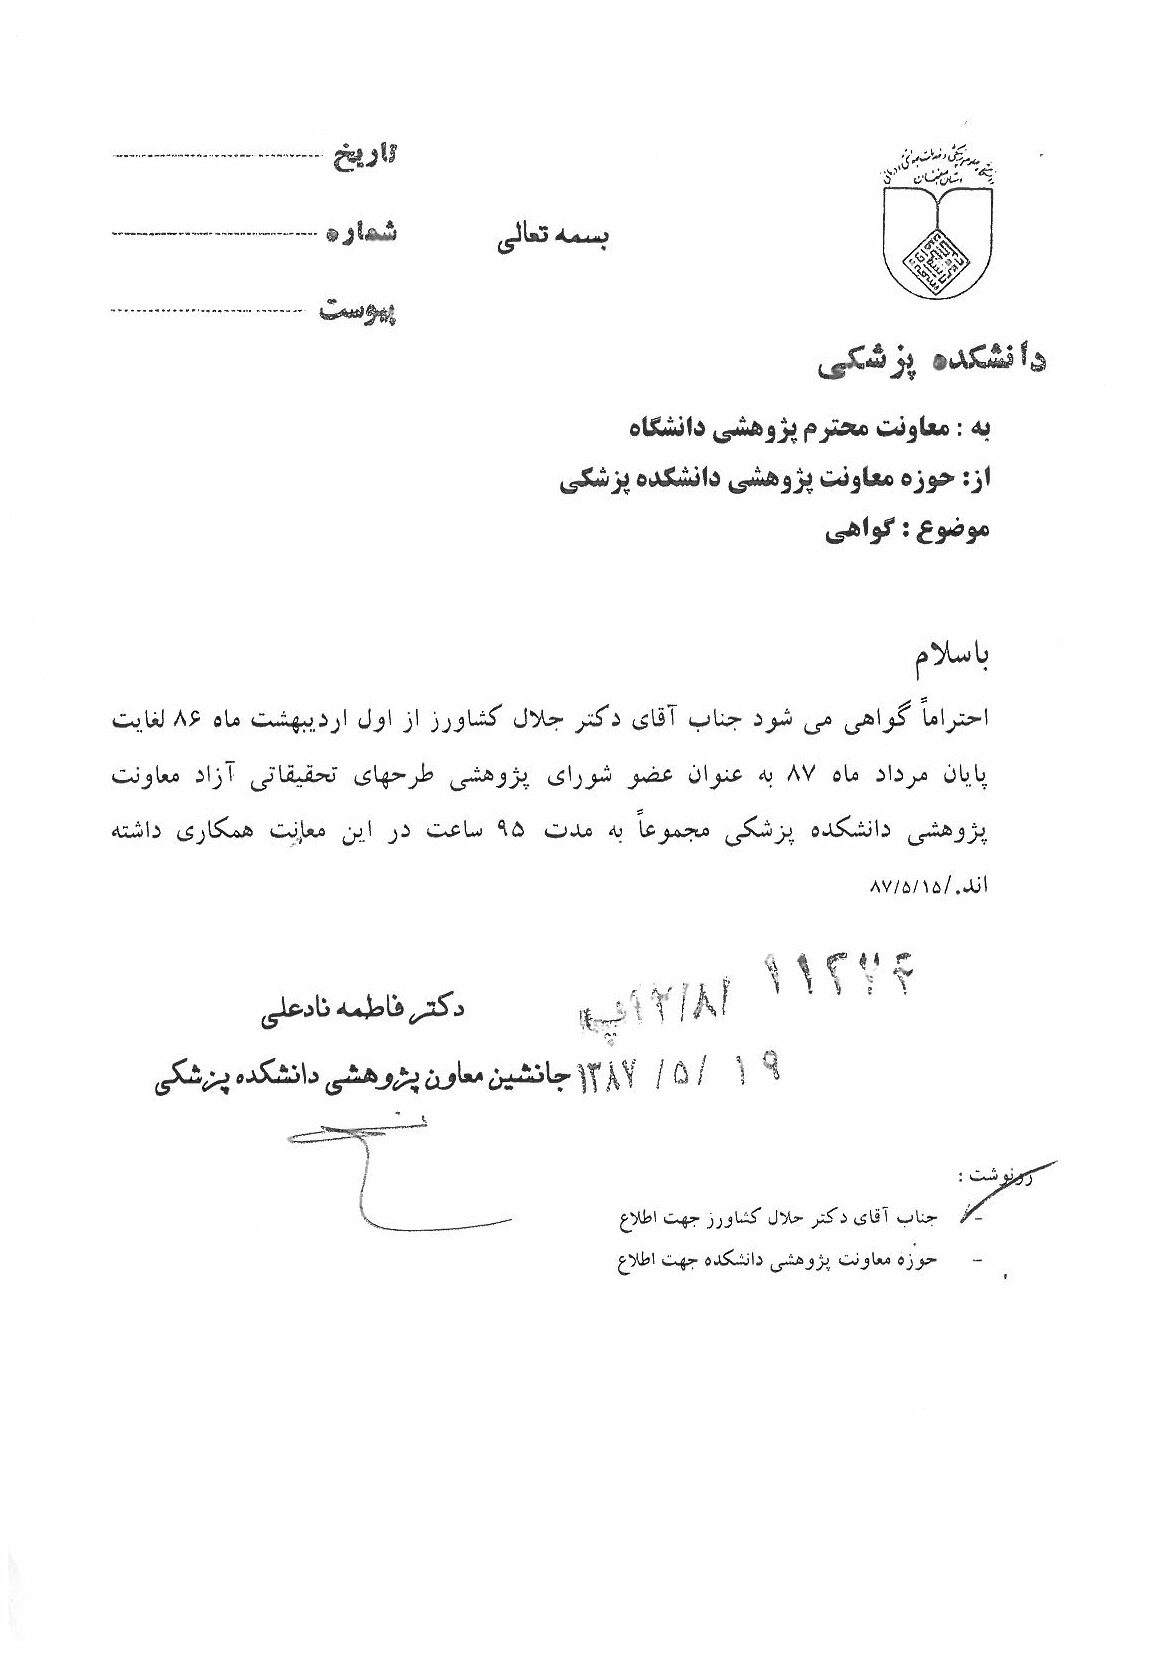 تاریخ
شماره
بسمه تعالی
پیوست
دانشکده پزشکی
به : معاونت محترم پژوهشی دانشگاه
از: حوزه معاونت پژوهشی دانشکده پزشکی
موضوع : گواهی
باسلام
احتراماً گواهی می شود جناب آقای دکتر جلال کشاورز از اول اردیبهشت ماه ۸۶ لغایت
پایان مرداد ماه ۸۷ به عنوان عضو شورای پژوهشی طرحهای تحقیقاتی آزاد معاونت
پژوهشی دانشکده پزشکی مجموعاً به مدت ۹۵ ساعت در این معاونت همکاری داشته
اند./۸۷/۵/۱۵
دکتر فاطمه نادعلی
۱۳۸۷ /۵ / ۱۹
جانشین معاون پژوهشی دانشکده پزشکی
رونوشت :
- جناب آقای دکتر جلال کشاورز جهت اطلاع
- حوزه معاونت پژوهشی دانشکده جهت اطلاع